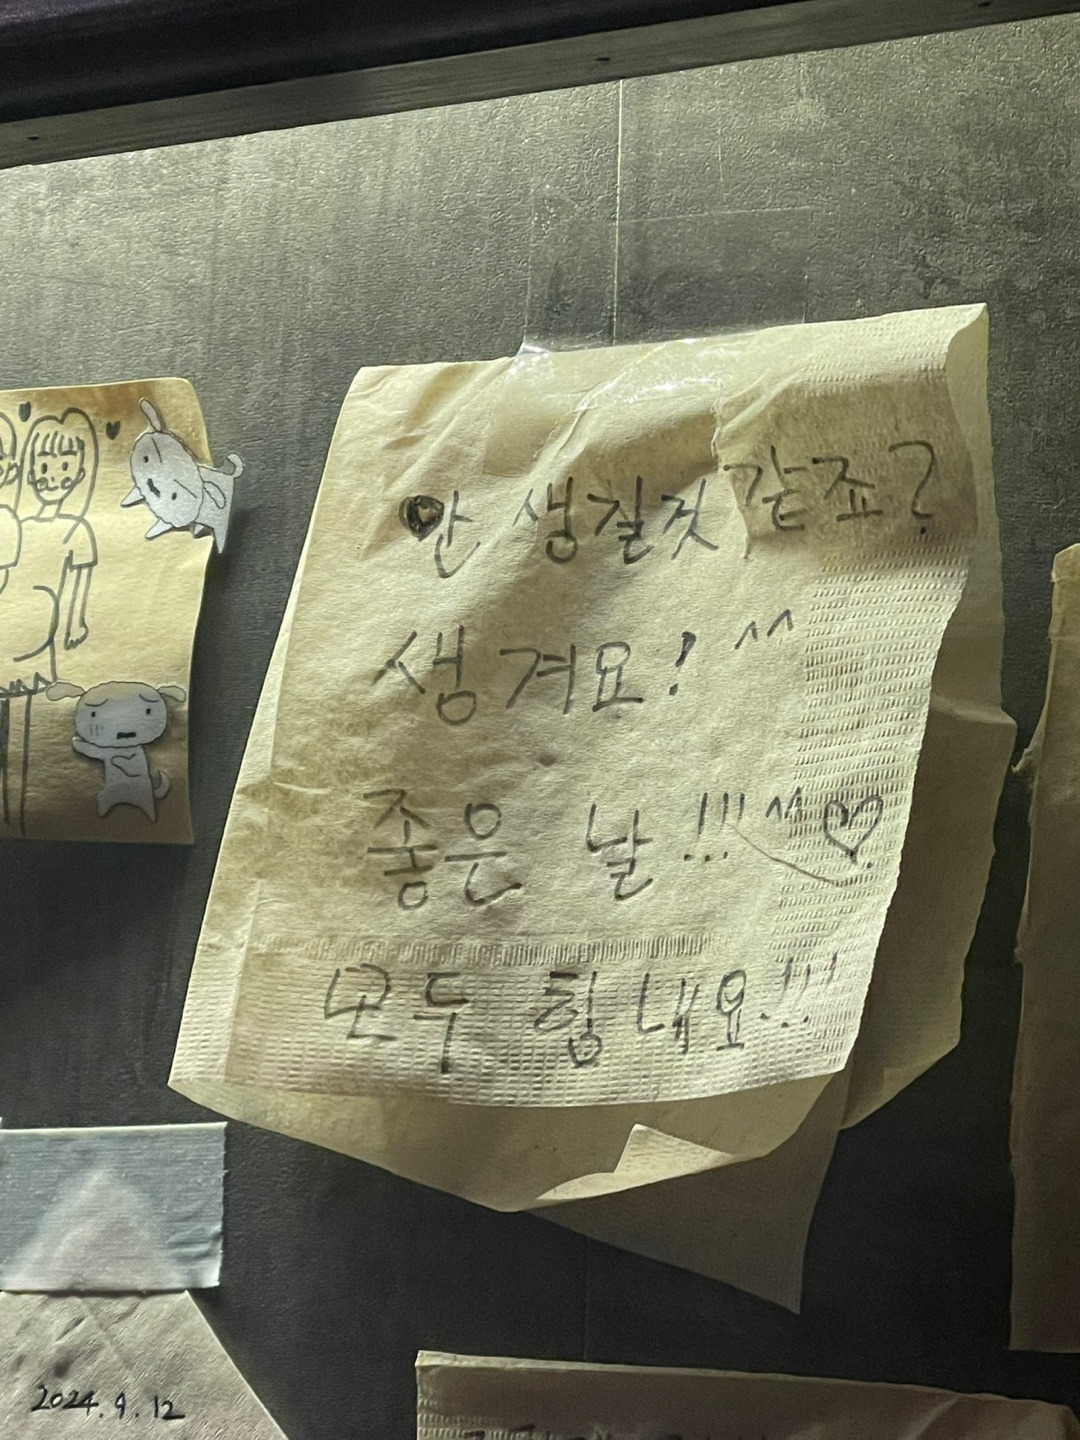 안 생길것 같죠?
생겨요! ^^
좋은 날!!! ^^♡
모두 힘내요!!!
2024. 9. 12